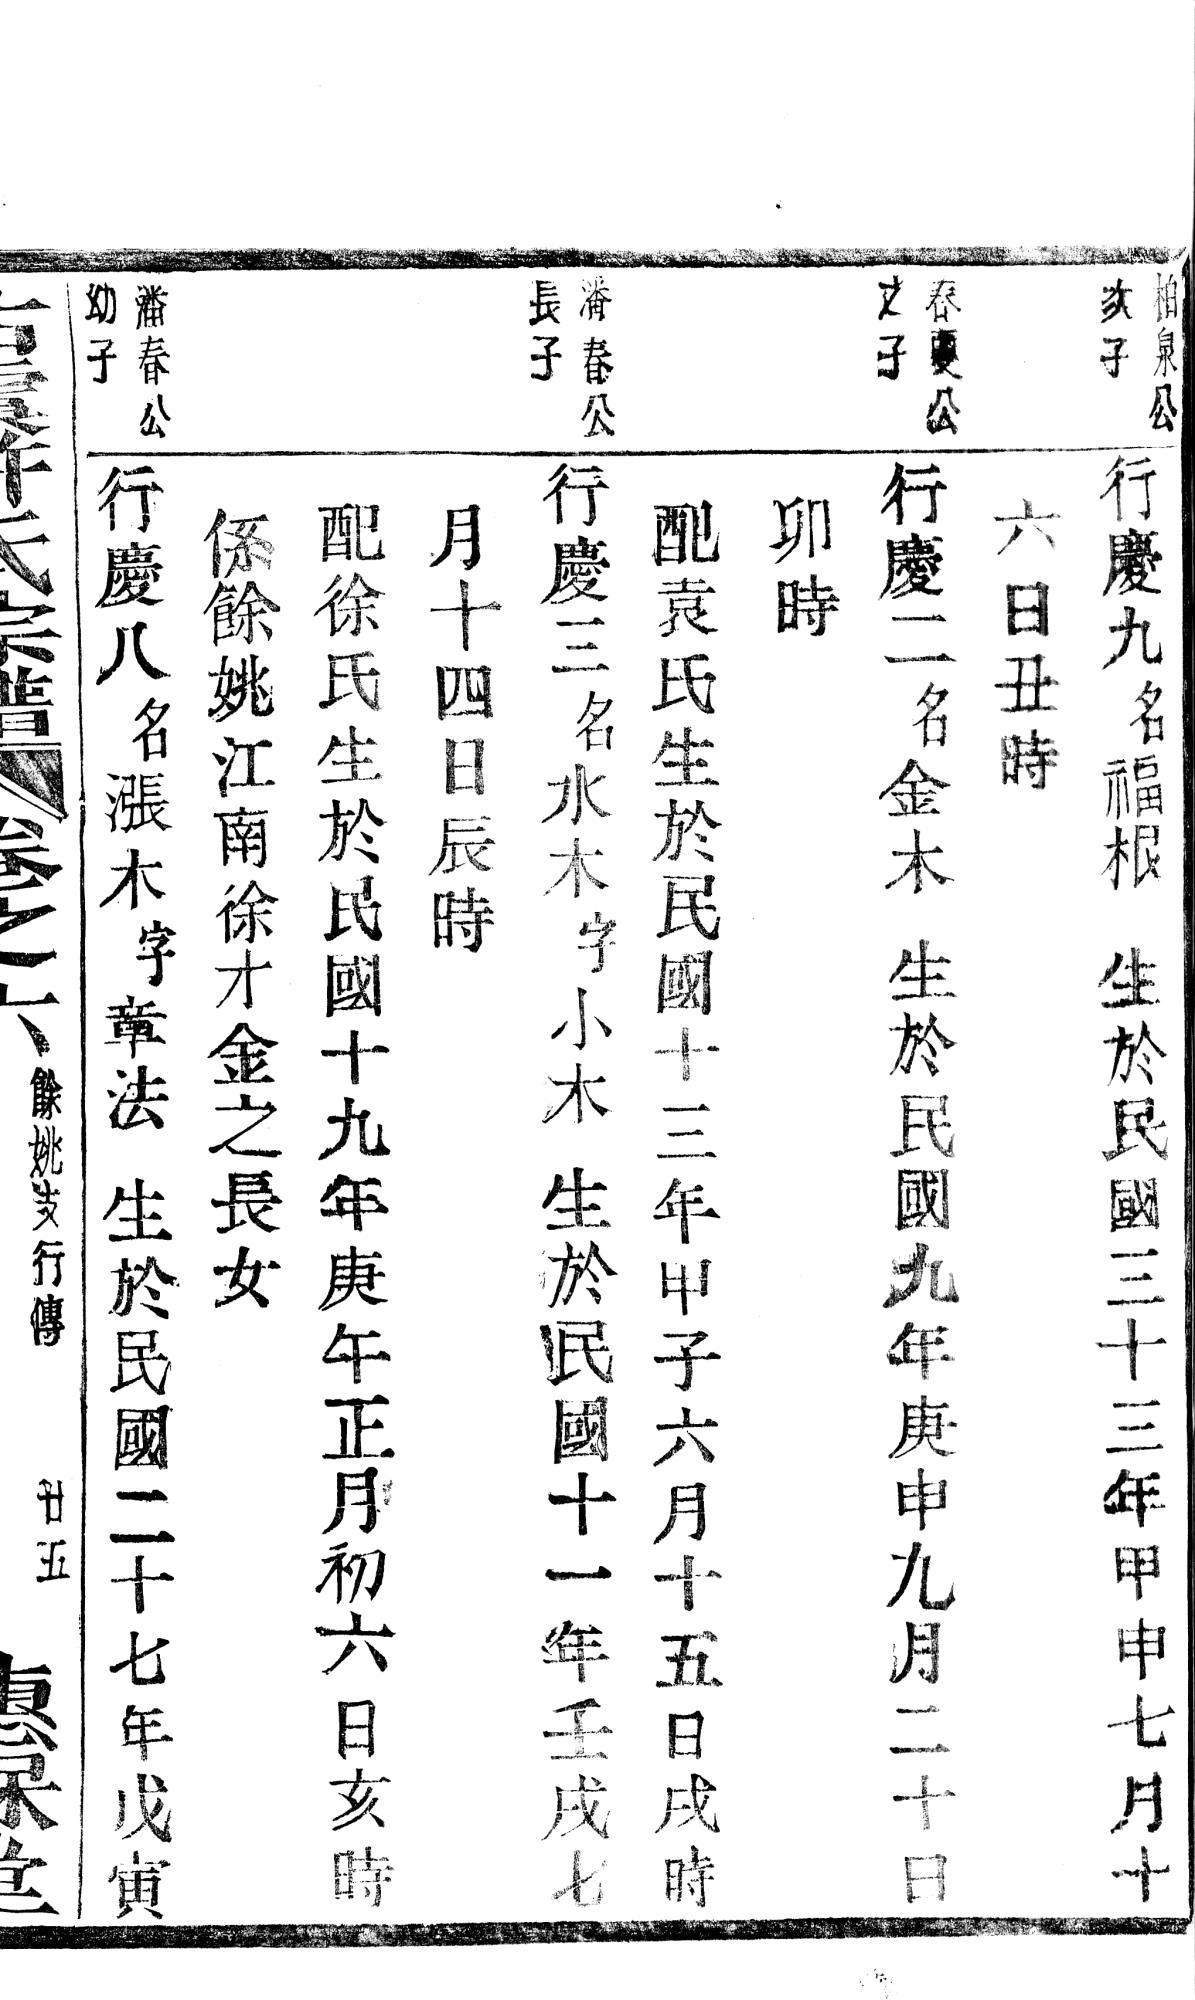 柏泉公
次子
行慶九名福根　生於民國三十三年甲申七月十
六日丑時
春夏公
次子
行慶二名金木　生於民國九年庚申九月二十日
卯時
配袁氏生於民國十三年甲子六月十五日戌時
潘春公
長子
行慶三名水木字小木　生於民國十一年壬戌七
月十四日辰時
配徐氏生於民國十九年庚午正月初六日亥時
係餘姚江南徐才金之長女
潘春公
幼子
行慶八名漲木字章法　生於民國二十七年戊寅
古虞許氏宗譜
卷之六
餘姚支行傳
廿五
惠保堂